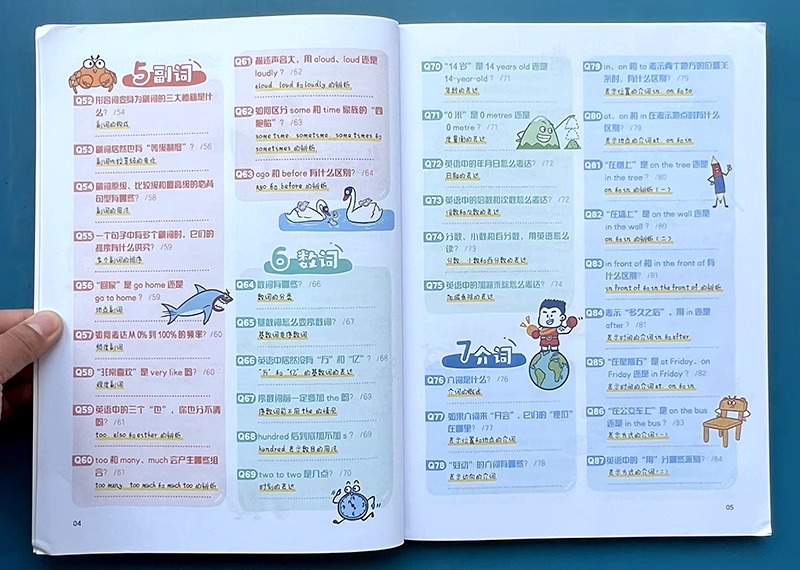 5 副词
Q52 形容词变身为副词的三大秘籍是什
么? /54
副词的构成
Q53 副词居然也有“等级制度”? /56
副词比较等级的变化
Q54 副词原级、比较级和最高级的必背
句型有哪些? /58
副词的用法
Q55 一个句子中有多个副词时,它们的
排序有什么讲究? /59
多个副词的排序
Q56 “回家”是 go home 还是
go to home? /59
地点副词
Q57 如何表达从0%到100%的频率? /60
频度副词
Q58 “非常喜欢”是 very like 吗? /60
程度副词
Q59 英语中的三个“也”,你也分不清
吗? /61
too、also 和 either 的辨析
Q60 too 和 many、much 会产生哪些组
合? /61
too many、too much 和 much too 的辨析
04
Q61 描述声音大,用 aloud、loud 还是
loudly? /62
aloud、loud 和 loudly 的辨析
Q62 如何区分 some 和 time 家族的“四
胞胎”? /63
some time、sometime、some times 和
sometimes 的辨析
Q63 ago 和 before 有什么区别? /64
ago 和 before 的辨析
6 数词
Q64 数词有哪些? /66
数词的分类
Q65 基数词怎么变序数词? /67
基数词变序数词
Q66 英语中居然没有“万”和“亿”? /68
“万”和“亿”的基数词的表达
Q67 序数词前一定要加 the 吗? /69
序数词前不用 the 的情况
Q68 hundred 后到底加不加 s? /69
hundred 表示数目的用法
Q69 two to two 是几点? /70
时刻的表达
Q70 “14 岁”是 14 years old 还是
14-year-old? /71
年龄的表达
Q71 “0 米”是 0 metres 还是
0 metre? /71
度量衡的表达
Q72 英语中的年月日怎么表达? /72
日期的表达
Q73 英语中的倍数和次数怎么表达? /72
倍数和次数的表达
Q74 分数、小数和百分数,用英语怎么
读? /73
分数、小数和百分数的表达
Q75 英语中的加减乘除怎么表达? /74
加减乘除的表达
7 介词
Q76 介词是什么? /76
介词的概述
Q77 如果介词来“开会”,它们的“座位”
在哪里? /77
表示位置和地点的介词
Q78 “好动”的介词有哪些? /78
表示动向的介词
Q79 in、on 和 to 表示两个地方的位置关
系时,有什么区别? /79
表示位置的介词 in、on 和 to
Q80 at、on 和 in 在表示地点时有什么
区别? /79
表示地点的介词 at、on 和 in
Q81 “在树上”是 on the tree 还是
in the tree? /80
on 和 in 的辨析(一)
Q82 “在墙上”是 on the wall 还是
in the wall? /80
on 和 in 的辨析(二)
Q83 in front of 和 in the front of 有
什么区别? /81
in front of 和 in the front of 的辨析
Q84 表示“多久之后”,用 in 还是
after? /81
表示时间的介词 in 和 after
Q85 “在星期五”是 at Friday、on
Friday 还是 in Friday? /82
表示时间的介词 at、on 和 in
Q86 “在公交车上”是 on the bus
还是 in the bus? /83
表示方式的介词(一)
Q87 英语中的“用”分哪些派别? /84
表示方式的介词(二)
05